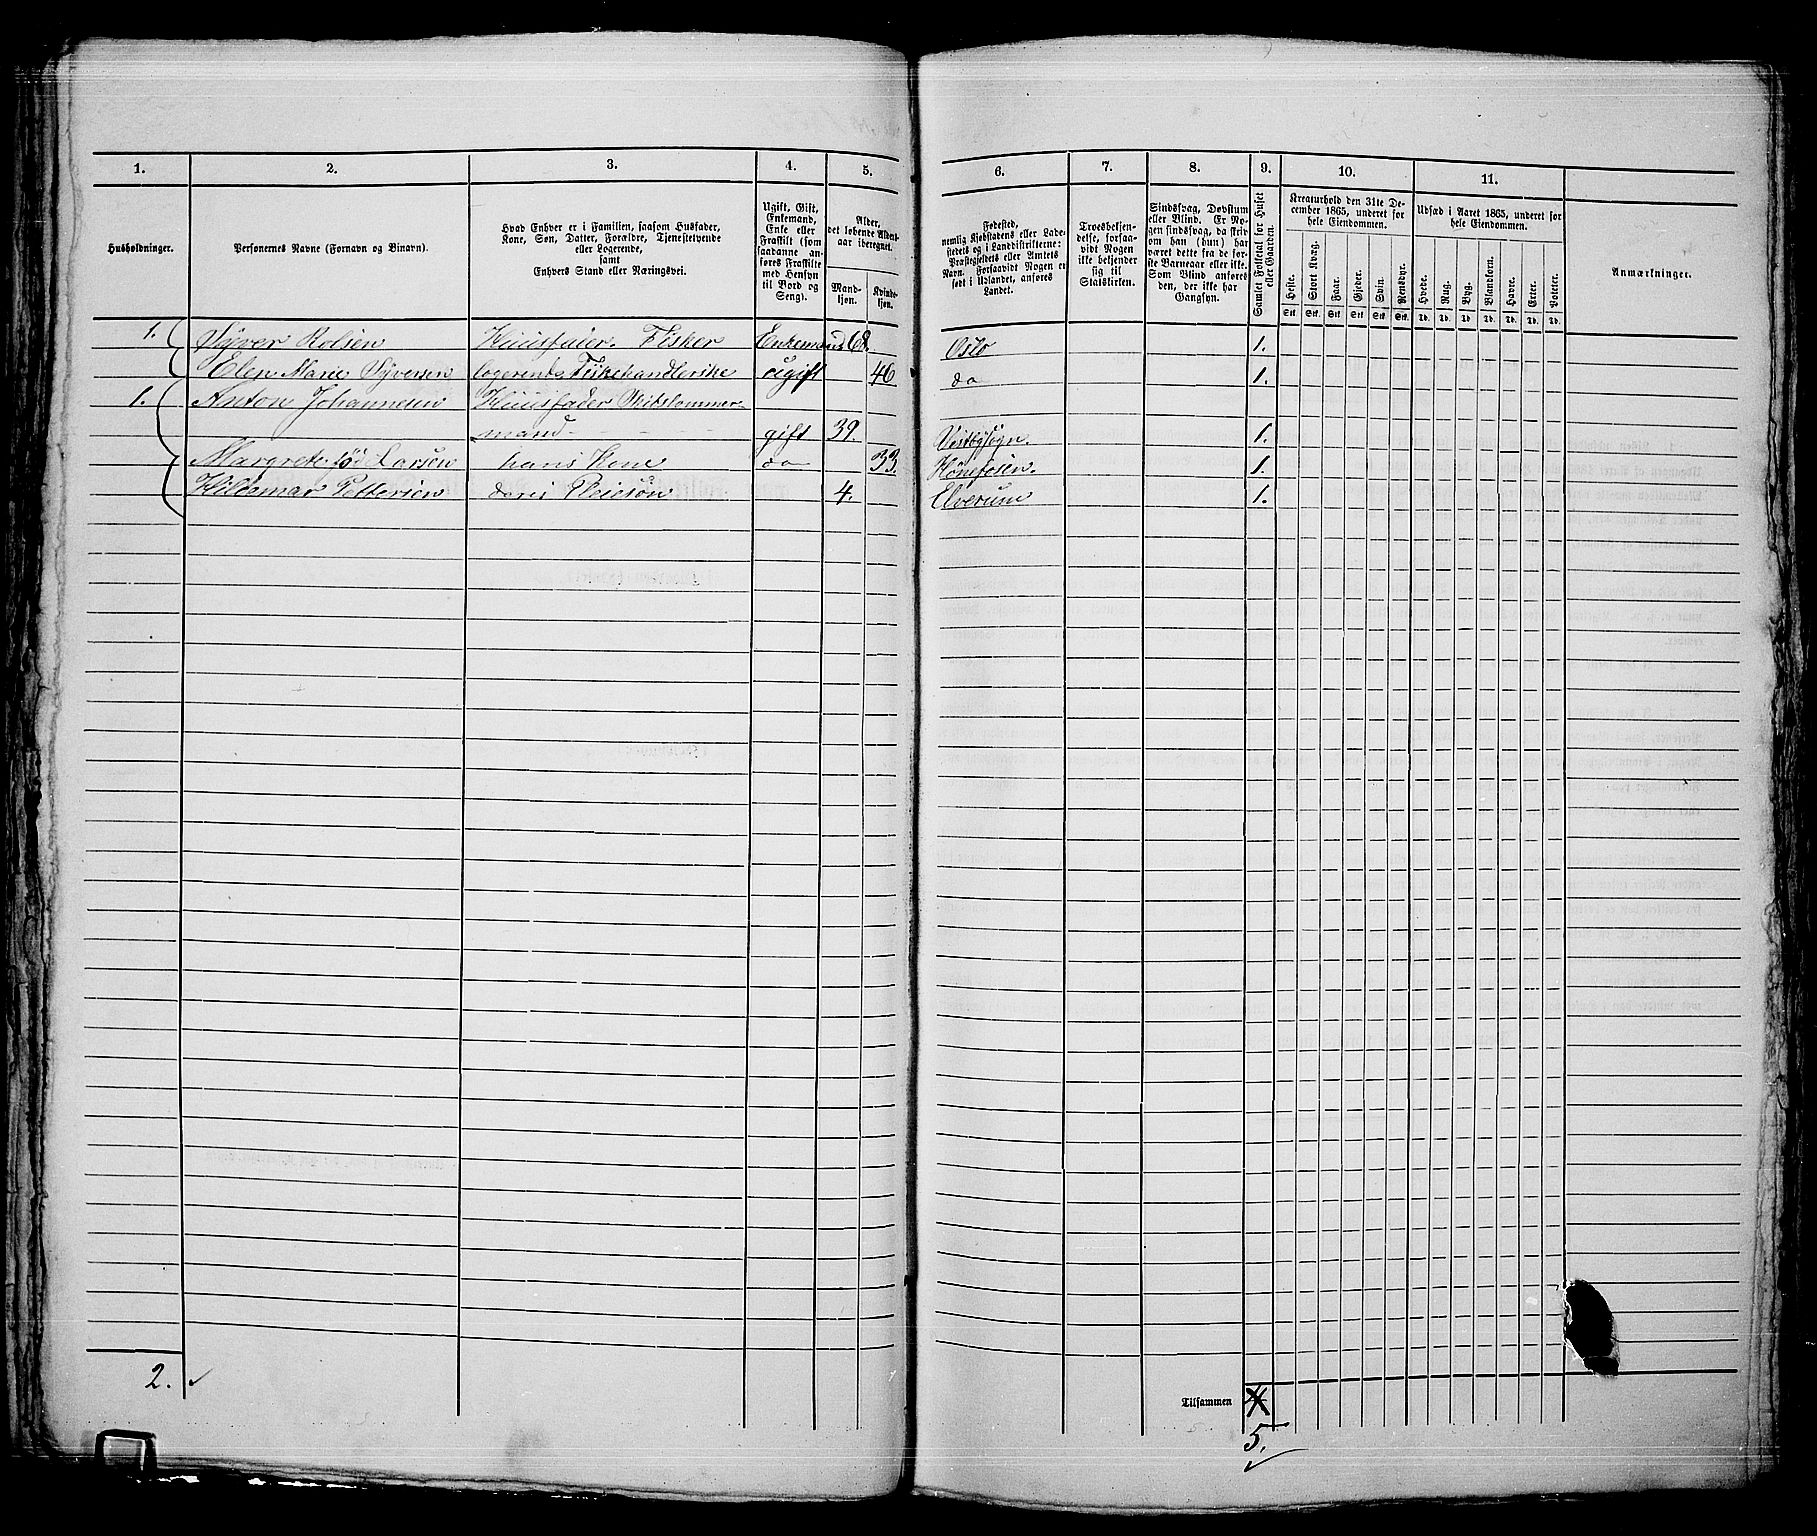 1.
2.
3.
4.
5.
6.
7.
8.
9.
10.
11.
Husholdninger.
Personernes Navne (Fornavn og Binavn).
Hvad Enhver er i Familien, saasom Husfader,
Kone, Søn, Datter, Forældre, Tjenestetyende
eller Logerende,
samt
Enhvers Stand eller Næringsvei.
Ugift, Gift,
Enkemand,
Enke eller
Fraskilt (som
saadanne an-
føres Fraskilte
med Hensyn
til Bord og
Seng).
Alder,
det løbende Alders-
aar iberegnet.
Mand-
kjøn.
Kvinde-
kjøn.
Fødested,
nemlig Kjøbstadens eller Lade-
stedets og i Landdistrikterne:
Præstegjeldets eller Amtets
Navn. Forsaavidt Nogen er
født i Udlandet, anføres
Landet.
Troesbekjen-
delse, forsaa-
vidt Nogen
ikke bekjender
sig til
Statskirken.
Sindssvag, Døvstum
eller Blind. Er No-
gen sindssvag, da skriv
om han (hun) har
været dette fra de før-
ste Barneaar eller ikke.
Som Blind anføres
den, der ikke har
Gangsyn.
Samlet Folketal for Huset
eller Gaarden.
Kreaturhold den 31te De-
cember 1865, underet for
hele Eiendommen.
Heste.
Stort Kvæg.
Faar.
Gjeder.
Svin.
Rensdyr.
Stk. Stk. Stk. Stk. Stk. Stk.
Udsæd i Aaret 1865, underet for
hele Eiendommen.
Hvede.
Rug.
Byg.
Blandkorn.
Havre.
Erter.
Poteter.
Td. Td. Td. Td. Td. Td. Td.
Anmærkninger.
1. Syver Rolsen Huusfader. Fisker Enkemand 68. Oslo 1.
Elen Marie Syversen logerende Fiskehandlerske ugift 46 do 1.
1. Anton Johannesen Huusfader Skibstømmer-
mand gift 39. Vestbysogn. 1.
Margrete fød Larsen hans Kone do 33. Hønefosen. 1.
Hildemar Pettersen deres Pleiesøn 4. Elverum 1.
2.
Tilsammen 4
5.